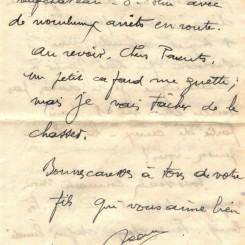 avec
de nombreux arrêts en route.
Au revoir, Chers Parents,
un petit cafard me guette,
mais je vais tâcher de le
chasser.
Bonnes caresses à tous de votre
fils qui vous aime bien